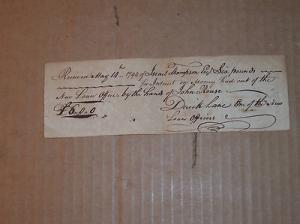 Received May 18th 1792 of Thompson Esqr Six pounds
for Interest on money had out of the
New Loan Office by the hands of John Rouse
£6.0.0 Derick Lane One of the New
Loan Officers